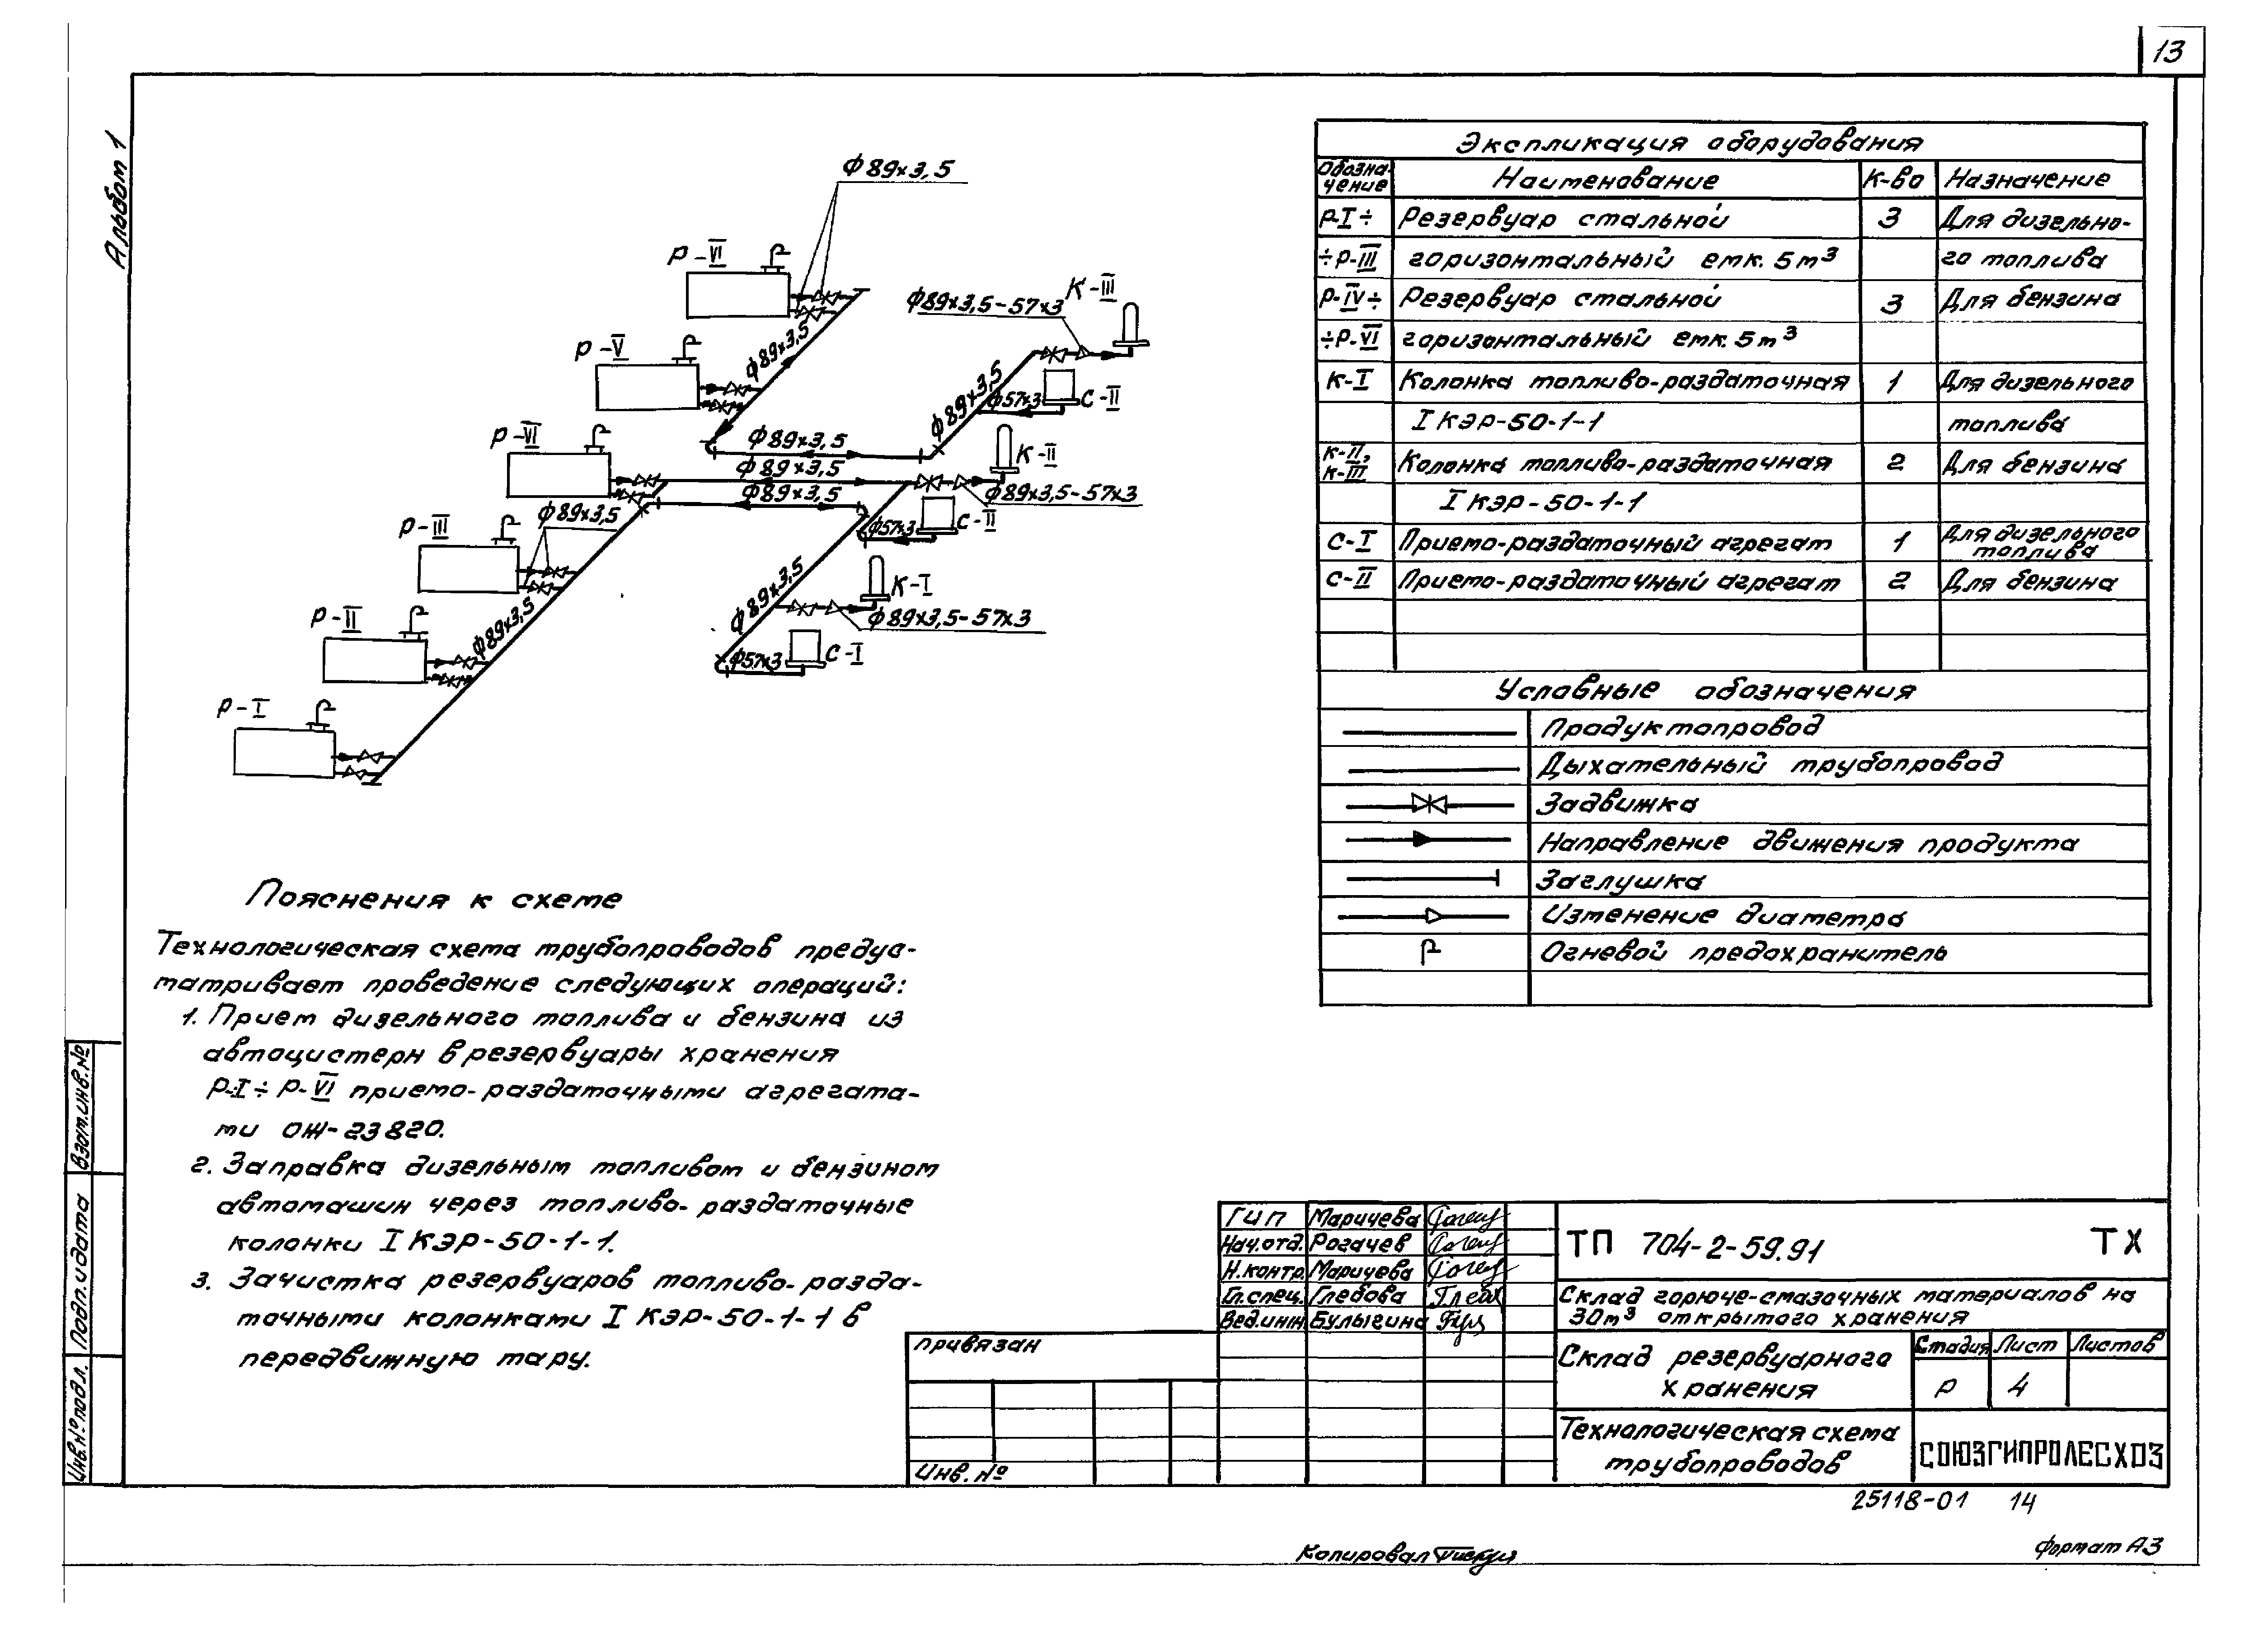 13
Альбом 1
ф89х3,5
Р-VI
Р-V
Р-VI
Р-III
Р-II
Р-I
ф89х3,5
ф89х3,5
ф89х3,5
ф89х3,5
ф89х3,5
ф89х3,5
ф89х3,5
ф89х3,5-57х3
К-III
ф89х3,5
ф57х3
С-II
К-II
ф89х3,5-57х3
ф57х3
С-II
ф89х3,5
К-I
ф89х3,5-57х3
ф57х3
С-I
Экспликация оборудования
Обозна-чение Наименование К-во Назначение
Р-I÷ Резервуар стальной 3 Для дизельно-
÷Р-III горизонтальный емк. 5м³ го топлива
Р-IV÷ Резервуар стальной 3 Для бензина
÷Р-VI горизонтальный емк. 5м³
К-I Колонка топливо-раздаточная 1 Для дизельного
I КЭР-50-1-1 топлива
К-II, К-III Колонка топливо-раздаточная 2 Для бензина
I КЭР-50-1-1
С-I Приемо-раздаточный агрегат 1 Для дизельного топлива
С-II Приемо-раздаточный агрегат 2 Для бензина
Условные обозначения
Продуктопровод
Дыхательный трубопровод
Задвижка
Направление движения продукта
Заглушка
Изменение диаметра
Огневой предохранитель
Пояснения к схеме
Технологическая схема трубопроводов предус-
матривает проведение следующих операций:
1. Прием дизельного топлива и бензина из
автоцистерн в резервуары хранения
Р-I÷Р-VI приемо-раздаточными агрегата-
ми ОЖ-23820.
2. Заправка дизельным топливом и бензином
автомашин через топливо-раздаточные
колонки I КЭР-50-1-1.
3. Зачистка резервуаров топливо-разда-
точными колонками I КЭР-50-1-1 в
передвижную тару.
Взам.инв.№
Подп. и дата
Инв.№ подл.
ГИП Маричева
Нач.отд. Рогачев
Н.контр. Маричева
Гл.спец. Глебова
Вед.инж. Булыгина
ТП 704-2-59.91 ТХ
Склад горюче-смазочных материалов на
30м³ открытого хранения
Склад резервуарного
хранения
Стадия Лист Листов
Р 4
Технологическая схема
трубопроводов
СОЮЗГИПРОЛЕСХОЗ
Привязан
Инв. №
25118-01 14
Копировал
Формат А3